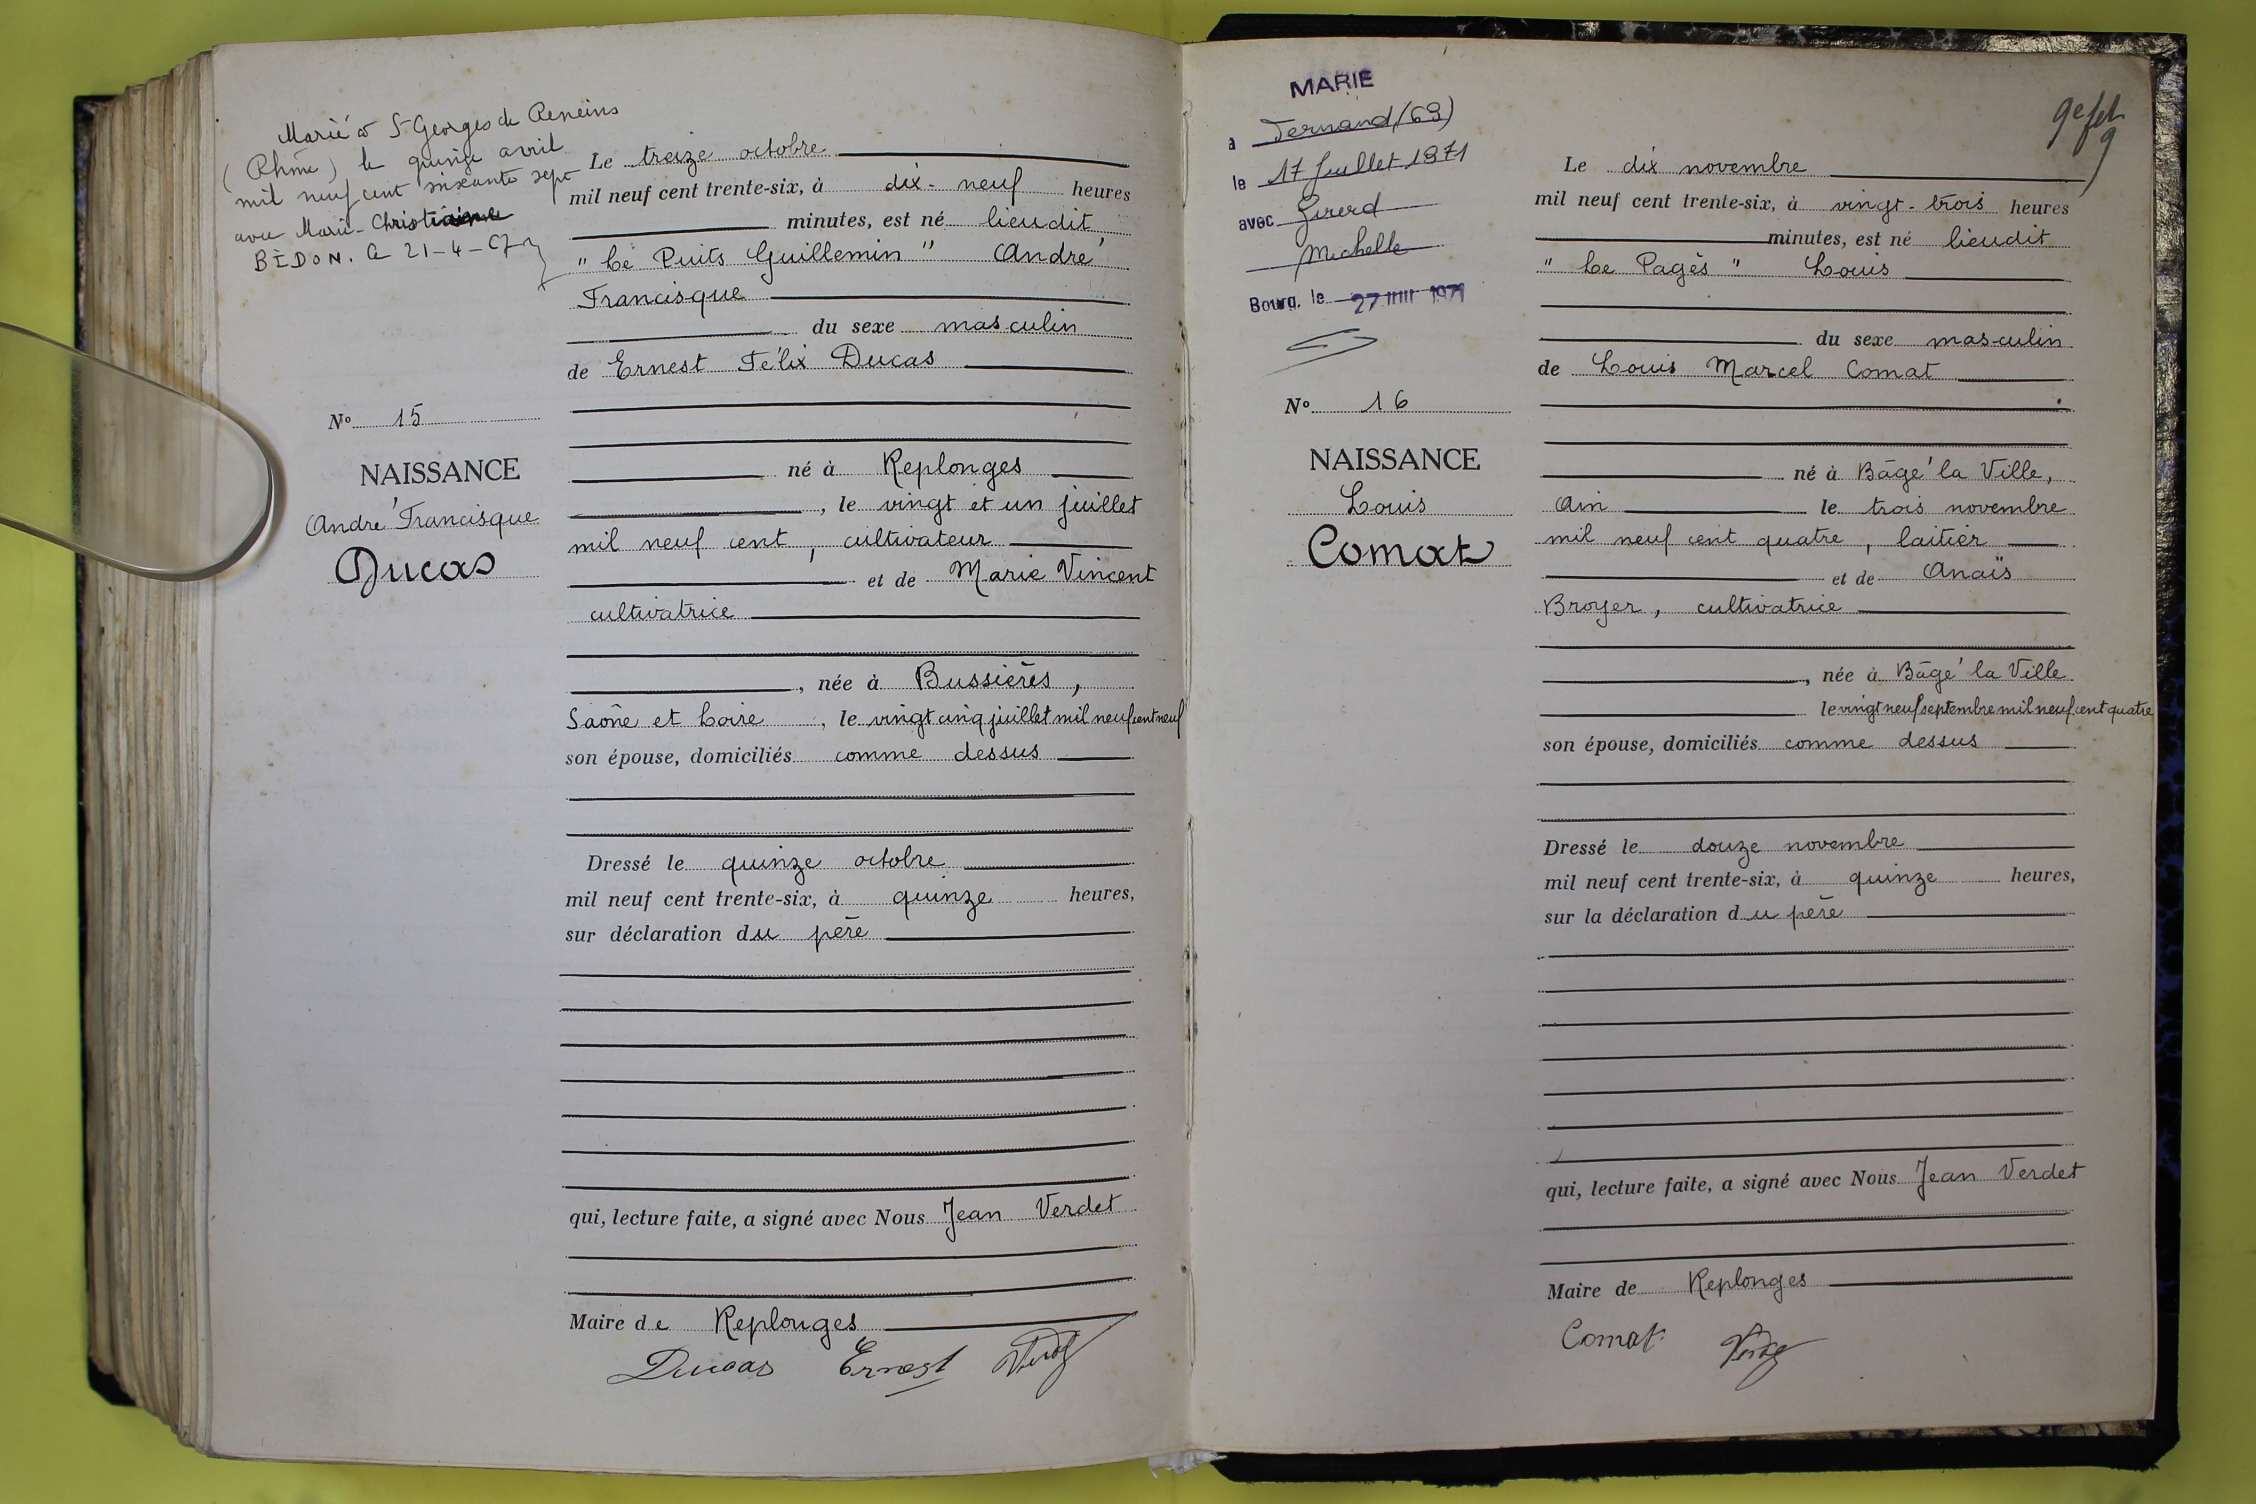 Marié à St Georges de Reneins
(Rhône) le quinze avril
mil neuf cent soixante sept
avec Marie-Christiane
BÉDON. Le 21-4-67
Le treize octobre
mil neuf cent trente-six, à dix-neuf heures
minutes, est né lieudit
" Le Puits Guillemin " André
Francisque
du sexe masculin
de Ernest Félix Ducas
né à Replonges
, le vingt et un juillet
mil neuf cent, cultivateur
et de Marie Vincent
cultivatrice
, née à Bussières,
Saône et Loire, le vingt cinq juillet mil neuf cent neuf
son épouse, domiciliés comme dessus
Dressé le quinze octobre
mil neuf cent trente-six, à quinze heures,
sur déclaration du père
qui, lecture faite, a signé avec Nous Jean Verdet
Maire de Replonges
Ducas Ernest Verdet
No 15
NAISSANCE
André Francisque
Ducas
MARIE
à Ternand (69)
le 17 Juillet 1971
avec Girerd
Michelle
Bourg, le 27 1971
No 16
NAISSANCE
Louis
Comat
Le dix novembre
mil neuf cent trente-six, à vingt-trois heures
minutes, est né lieudit
" Le Pagès " Louis
du sexe masculin
de Louis Marcel Comat
né à Bâgé la Ville,
Ain le trois novembre
mil neuf cent quatre, laitier
et de Anaïs
Broyer, cultivatrice
, née à Bâgé la Ville
le vingt neuf septembre mil neuf cent quatre
son épouse, domiciliés comme dessus
Dressé le douze novembre
mil neuf cent trente-six, à quinze heures,
sur la déclaration du père
qui, lecture faite, a signé avec Nous Jean Verdet
Maire de Replonges
Comat Verdet